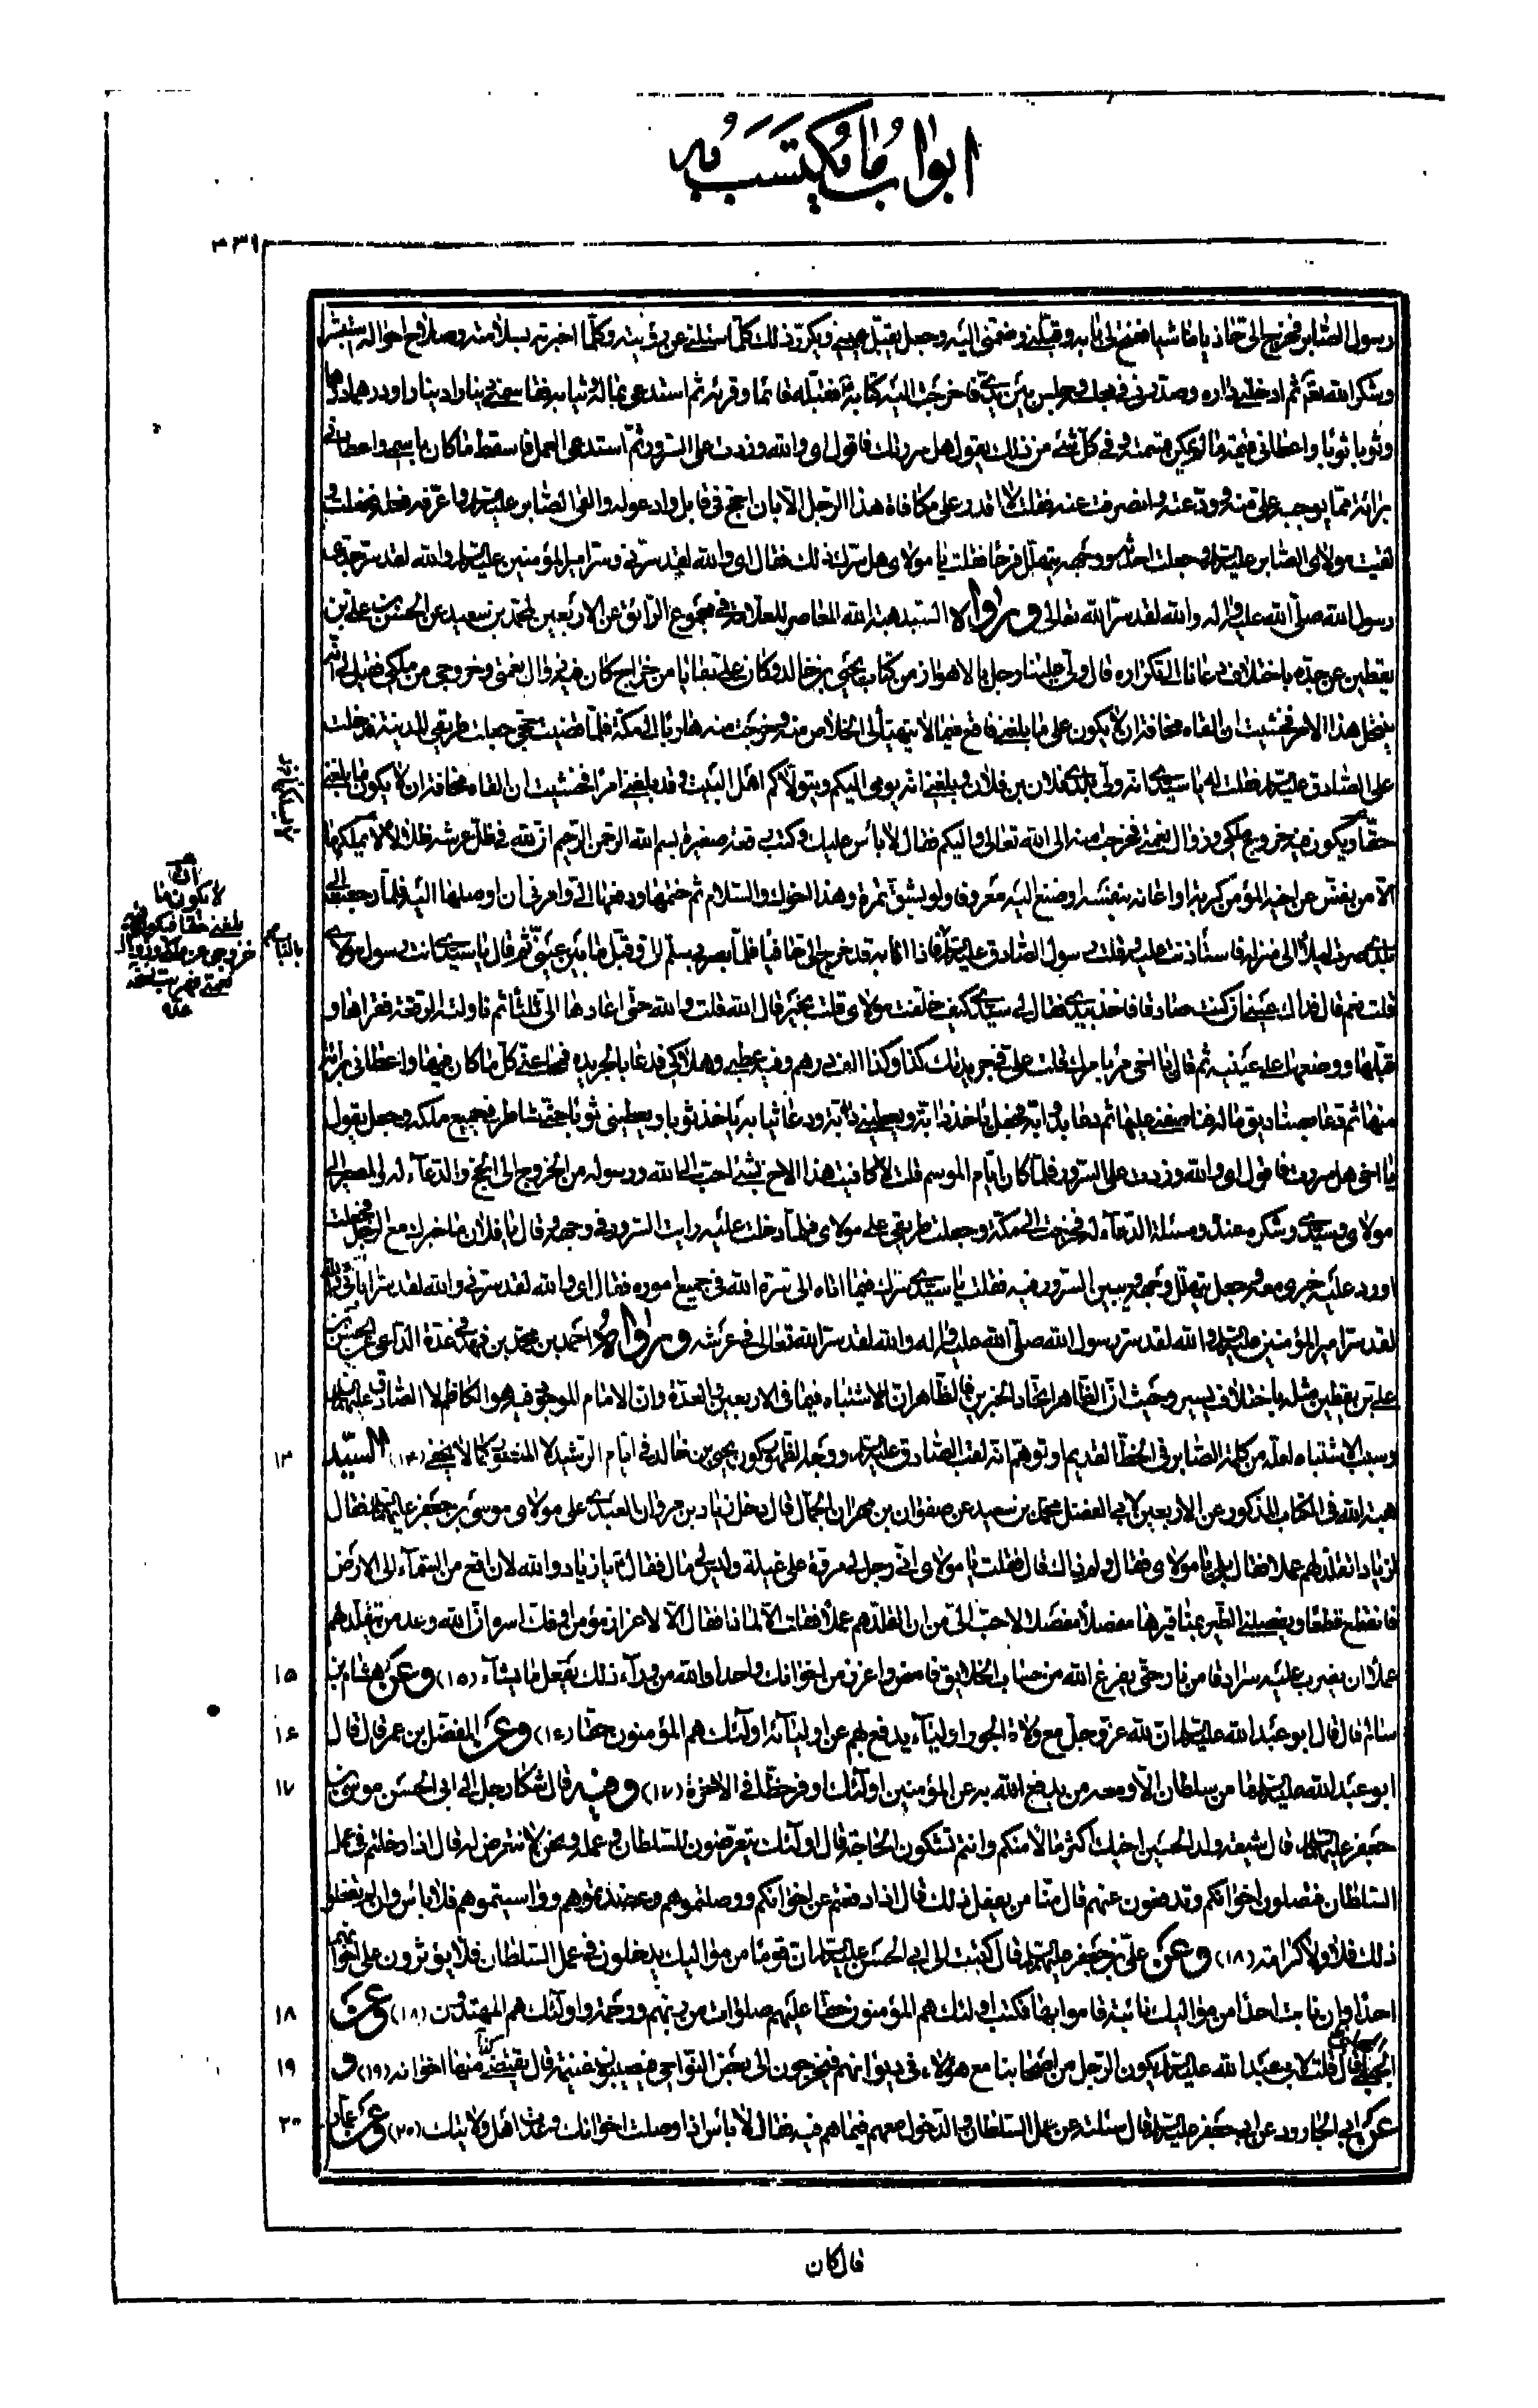 ابواب ما يكتسب به
٤٣٩
رسول الصابر فخرج الىّ حافيا ماشيا ففتح لى بابه وقبّلنى وضمّنى اليه وجعل يقبّل عينى ويكرّر ذلك كلّما سئلنى عن رؤيته وكلّما اخبرته بسلامته وصلاح احواله استبشر
وشكر الله تعالى ثم ادخلنى داره وصدّرنى فى مجلسه وجلس بين يدىّ فاخرجت اليه كتابه فقبّله قائما وقرئه ثم استدعى بماله وثيابه فقاسمنى دينارا دينارا ودرهما درهما
وثوبا ثوبا واعطانى قيمة ما لم يمكن قسمته وفى كلّ شئ من ذلك يقول هل سررتك فاقول اى والله وزدت على السرور ثمّ استدعى العمل فاسقط ما كان باسمى واعطانى
برائة ممّا يوجبه علىّ منه وودّعته وانصرفت عنه فقلت لا اقدر على مكافاة هذا الرجل الا بان احجّ فى قابل وادعو له والقى الصابر عليه السلام واعرّفه فعله ففعلت و
لقيت مولاى الصابر عليه السلام وجعلت احدّثه ووجهه يتهلّل فرحا فقلت يا مولاى هل سرّك ذلك فقال اى والله لقد سرّنى وسرّ امير المؤمنين عليه السلام والله لقد سرّ جدّى
رسول الله صلّى الله عليه واله والله لقد سرّ الله تعالى ورواه السيد هبة الله المعاصر للعلامة فى مجموع الرائق عن الاربعين لمحمد بن سعيد عن الحسن بن على بن
يقطين عن جدّه باختلاف دعانا الى تكراره قال ولّى علينا رجل بالاهواز من كتّاب يحيى بن خالد وكان علىّ بقايا من خراج كان فيه زوال نعمتى وخروجى من ملكى فقيل لى انّه
ينتحل هذا الامر فخشيت ان القاه مخافة ان لا يكون على ما بلغنى فاقع فيما لا يتهيّأ لى الخلاص منه فخرجت منه هاربا الى مكة فلمّا قضيت حجى جعلت طريقى المدينة فدخلت
على الصادق عليه السلام فقلت له يا سيدى انه ولّى بلدى فلان بن فلان وبلغنى انه يومى اليكم ويتولّاكم اهل البيت وقد بلغنى امره فخشيت ان القاه مخافة ان لا يكون ما بلغنى
حقّا ويكون فيه خروجى عن ملكى وزوال نعمتى فهربت منه الى الله تعالى واليكم فقال لا بأس عليك وكتب رقعة صغيرة بسم الله الرحمن الرحيم انّ لله فى ظلّ عرشه ظلالا لا يملكها
الا من نفّس عن اخيه المؤمن كربة او اعانه بنفسه او صنع اليه معروفا ولو بشقّ تمرة وهذا اخوك والسلام ثم ختمها ودفعها الىّ وامرنى ان اوصلها اليه فلمّا رجعت الى
بلدى صرت ليلا الى منزله فاستأذنت عليه وقلت رسول الصادق عليه السلام فاذا انا به قد خرج الىّ حافيا فلمّا بصر بى سلّم علىّ وقبّل ما بين عينىّ ثم قال يا سيدى انت رسول مولاى
قلت نعم قال فداك عينى ان كنت صادقا فاخذ بيدى فقال لى سيدى كيف خلّفت مولاى قلت بخير قال الله قلت والله حتّى اعادها الىّ ثلثا ثم ناولته الرقعة فقرأها و
قبّلها ووضعها على عينيه ثم قال يا اخى مر بامرك قلت علىّ فى جريدتك كذا وكذا الف درهم وفيه عطبى وهلاكى فدعا بالجريدة فمحا عنّى كلّ ما كان فيها واعطانى برائة
منها ثم دعا بصناديق ماله فناصفنى عليها ثم دعا بدوابه فجعل ياخذ دابّة ويعطينى دابّة ثم دعا ثيابه يأخذ ثوبا ويعطينى ثوبا حتّى شاطرنى جميع ملكه وجعل يقول
يا اخى هل سررت فاقول اى والله وزدت على السرور فلمّا كان ايّام الموسم قلت لا كافيت هذا الاخ بشئ احبّ الى الله ورسوله من الخروج الى الحجّ والدعاء له والمصير الى
مولاى وسيدى وشكره عنده ومسئلة الدعاء له فخرجت الى مكة وجعلت طريقى على مولاى فلمّا دخلت عليه رايت السرور فى وجهه وقال يا فلان ما خبرك مع الرجل فجعلت
اورد عليه خبرى معه وجعل يتهلّل وجهه ويبين السرور فيه فقلت يا سيدى سرّك فيما اتاه الىّ سرّه الله فى جميع اموره فقال اى والله لقد سرّنى والله لقد سرّ ابائى والله
لقد سرّ امير المؤمنين عليه السلام والله لقد سرّ رسول الله صلّى الله عليه واله والله لقد سرّ الله تعالى فى عرشه ورواه احمد بن محمد بن فهد فى عدة الداعى عن الحسن بن
على بن يقطين مثله باختلاف يسير وحيث انّ الظاهر اتحاد الخبرين فالظاهر ان الاشتباه فيما فى الاربعين والعدة وان الامام الموجود فيه هو الكاظم لا الصادق عليهما السلام
وسبب الاشتباه لعلّه من كلمة الصابر فى الخط القديم او توهّم انه لقب الصادق عليه السلام كما لا يخفى (١٣) السيّد
هبة الله فى الكتاب المذكور عن الاربعين لابى الفضل محمد بن سعيد عن صفوان بن مهران الجمّال قال دخل زياد بن مروان العبدى على مولاى موسى بن جعفر عليهما السلام فقال
لزياد اتقلّد لهم عملا فقال بلى يا مولاى فقال ولم ذاك قال فقلت يا مولاى انّى رجل لى مروة علىّ عيلة وليس لى مال فقال يا زياد والله لان اقع من السماء الى الارض
فانقطع قطعا ويفصلنى الطير بمناقيرها مفصلا مفصلا لاحبّ الىّ من ان اتقلّدهم عملا فقلت الا لماذا فقال الا لاعزاز مؤمن او فكّ اسره انّ الله وعد من يتقلّد لهم
عملا ان يضرب عليه سرادقا من نار حتى يفرغ الله من حساب الخلايق فامض واعزز من اخوانك واحدا والله من وراء ذلك يفعل ما يشاء (١٥) وعن هشام بن
سالم قال قال ابو عبد الله عليه السلام ان لله عز وجل مع ولاة الجور اولياء يدفع بهم عن اوليائه اولئك هم المؤمنون حقا (١٦) وعن المفضّل بن عمر قال قال
ابو عبد الله عليه السلام ما من سلطان الا ومعه من يدفع الله به عن المؤمنين اولئك اوفر حظّا فى الاخرة (١٧) وفيه قال شكا رجل الى ابى الحسن موسى بن
جعفر عليهما السلام قال شيعة ولد الحسين اخيك اكثر مالا منكم وانتم تشكون الحاجة قال اولئك يتعرّضون للسلطان وعمله ونحن لا نتعرض له قال اذا دخلتم فى عمل
السلطان فتصلون اخوانكم وتدفعون عنهم قال منّا من يفعل ذلك قال اذا دفعتم عن اخوانكم ووصلتموهم وعضدتموهم وواسيتموهم فلا بأس وان لم تفعلوا
ذلك فلا ولا كرامة (١٨) وعن علىّ بن جعفر عليهما السلام قال كتبت الى ابى الحسن عليه السلام ان قوما من مواليك يدخلون فى عمل السلطان فلا يؤثرون على اخوانهم
احدا وان نابت احدا من مواليك نائبة قاموا بها فكتب اولئك هم المؤمنون حقّا عليهم صلوات من ربهم ورحمة واولئك هم المهتدون (١٨) وعن
الحلبى قال قلت لابى عبد الله عليه السلام يكون الرجل من اصحابنا مع هؤلاء فى ديوانهم فيخرجون الى بعض النواحى فيصيبون غنيمة قال يقضى منها اخوانه (١٩) و
عن ابى الجارود عن ابى جعفر عليه السلام قال سئلته عن عمل السلطان والدخول معهم فيما هم فيه فقال لا بأس اذا وصلت اخوانك وعدت اهل ولايتك (٢٠) وعن عمّار
ان
لا يكون ما
بلغنى حقا فيكون فيه
خروجى عن ملكى وزوال
نعمتى فهربت منه
١٣
١٥
١٦
١٧
١٨
١٩
٢٠
قال كان